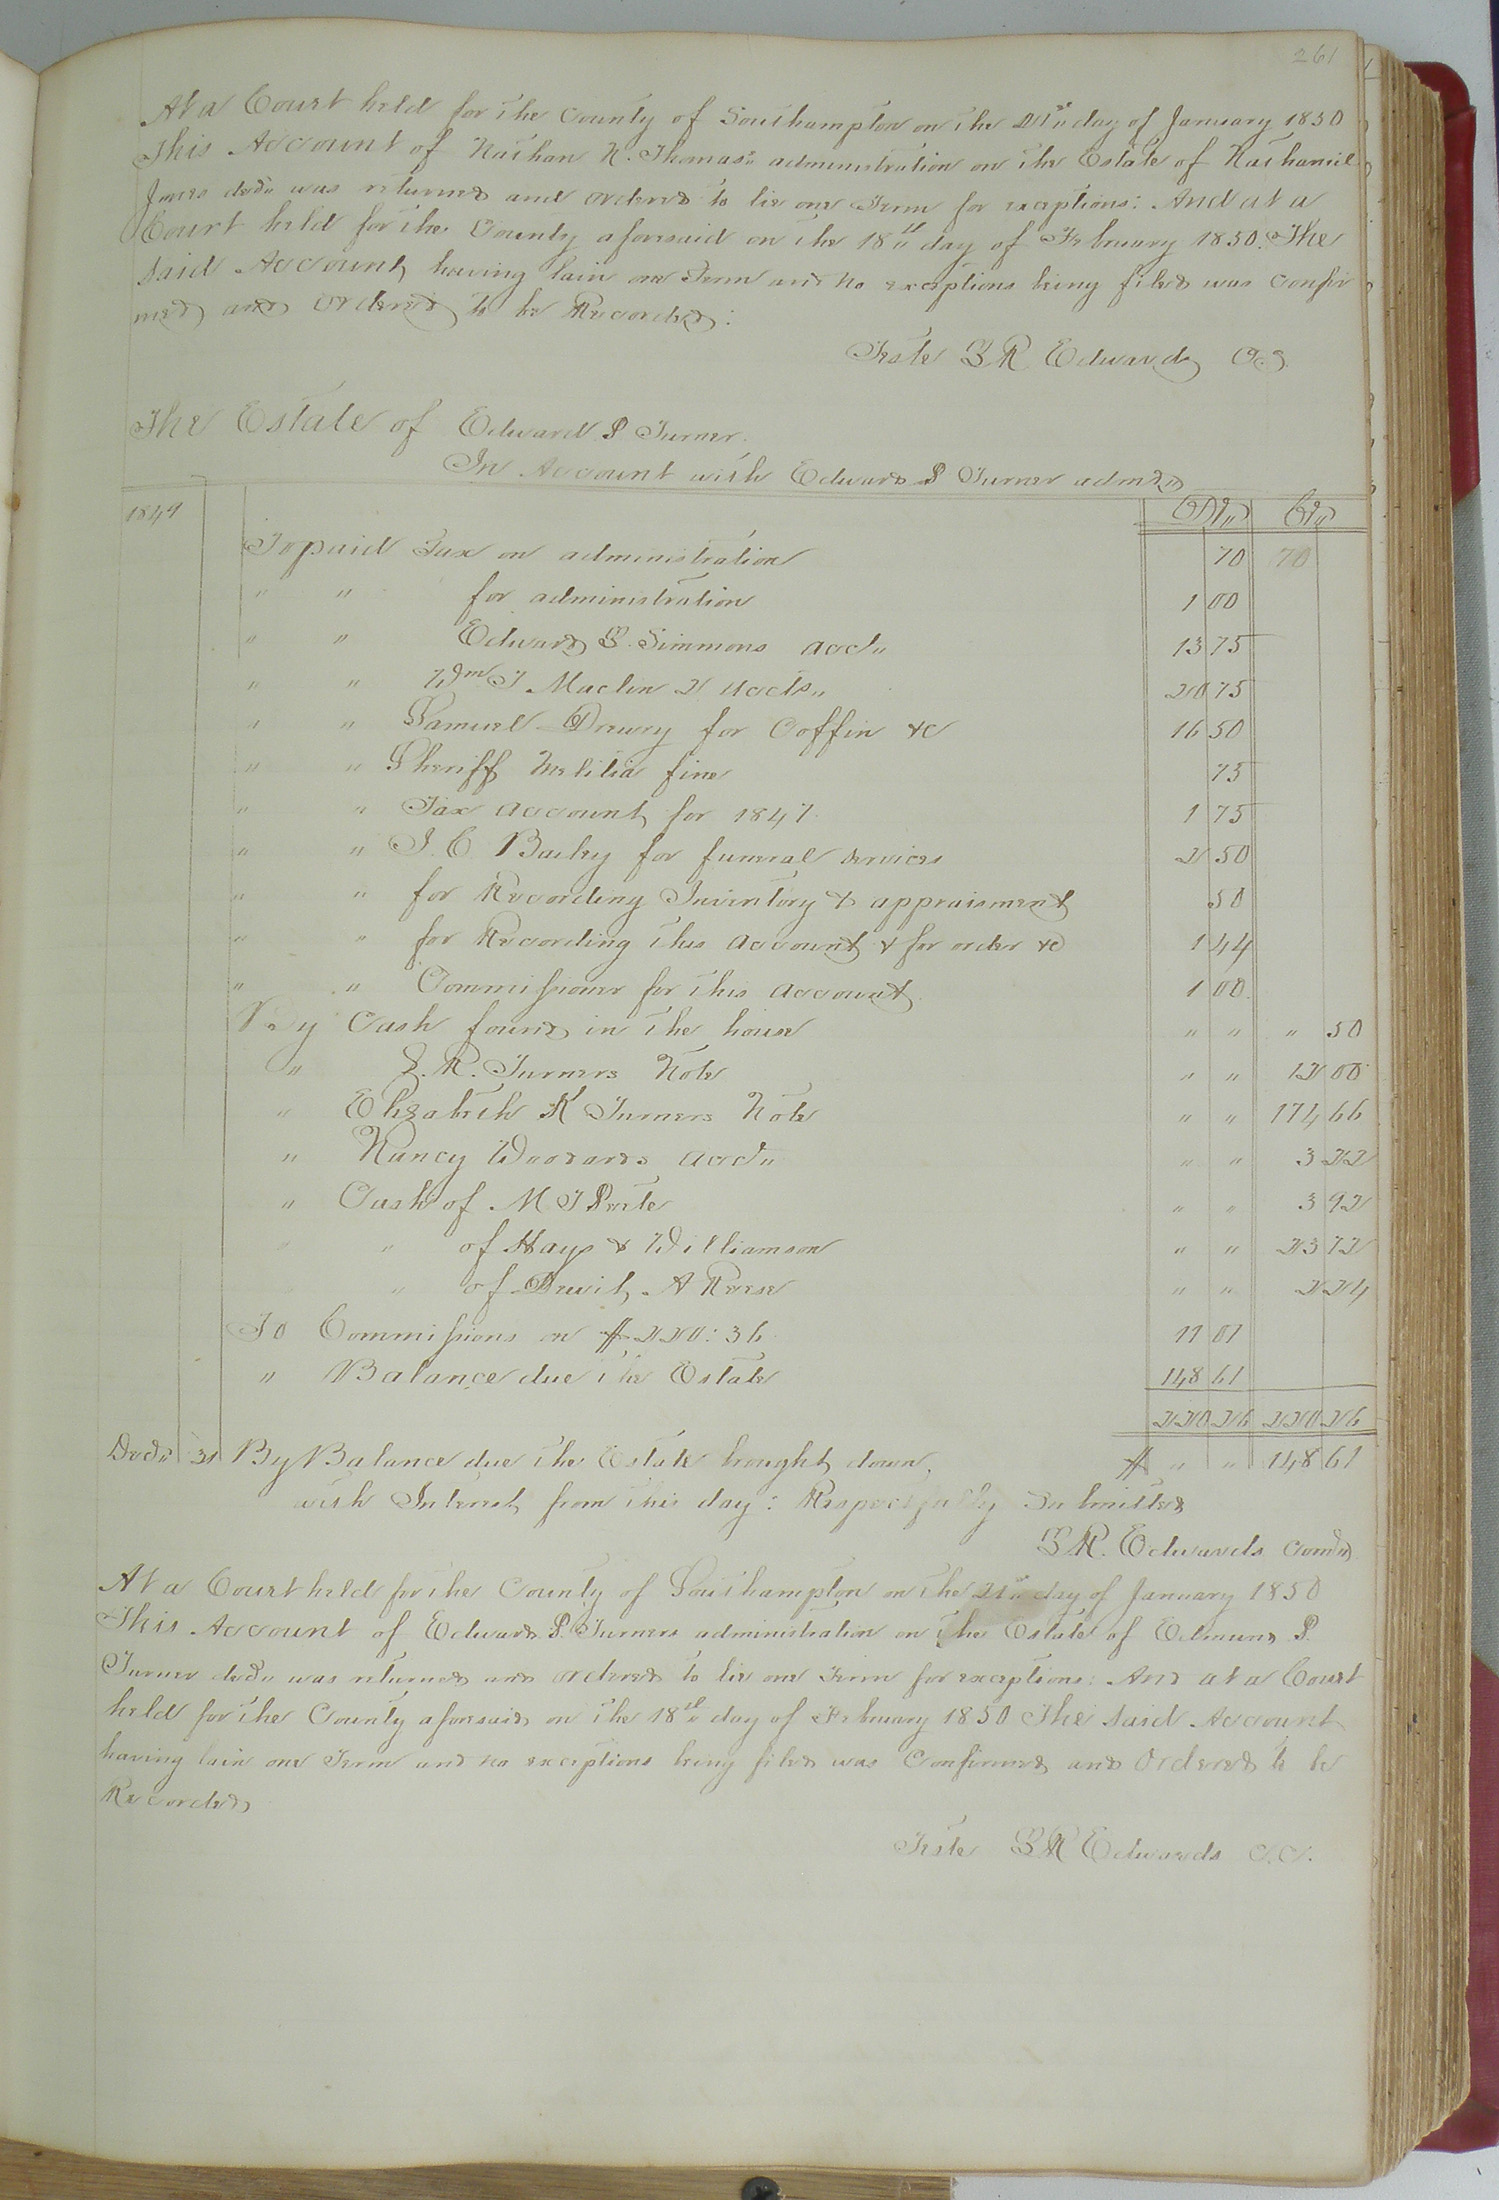 261
At a Court held for the County of Southampton on the 21st day of January 1850
This Account of Nathan N. Thomas's administration on the Estate of Nathaniel
Jones decd was returned and ordered to lie one Term for exceptions: And at a
Court held for the County aforesaid on the 18th day of February 1850. The
Said Account having lain one Term and no exceptions being filed was Confir
med and Ordered to be Recorded:
Teste L R Edwards C.C.
The Estate of Edward P. Turner.
In Account with Edward P Turner admr
1849 Dr Cr
To paid Tax on administration 70 70
" " for administration 1 00
" " Edward S. Simmons acct 13 75
" " Wm T Maclin 2 accts 20 75
" " Samuel Drewry for Coffin &c 16 50
" " Sheriff Melitia fine 75
" " Tax account for 1847 1 75
" " J. C. Bailey for funeral services 2 50
" " for Recording Inventory & appraisment 50
" " for Recording this account & for order &c 1 44
" " Commissioner for this account 1 00
By Cash found in the house " " " 50
" J. R. Turners Note " " 12 00
" Elizabeth K Turners Note " " 174 66
" Nancy Woodards acct " " 3 22
" Cash of M T Peete " " 3 92
" of Hays & Williamson " " 23 72
" of Drewit A Reese " " 2 24
To Commissions on $220:36 11 01
" Balance due the Estate 148 61
220 26 220 26
Decr 31 By Balance due the Estate brought down. $ " " 148 61
with Interest from this day: Respectfully Submitted
L R. Edwards Comr
At a Court held for the County of Southampton on the 21st day of January 1850
This Account of Edward P. Turners administration on the Estate of Edmund P.
Turner decd was returned and ordered to lie one Term for exceptions: And at a Court
held for the County aforesaid on the 18th day of February 1850 The Said Account
having lain one Term and no exceptions being filed was Confirmed and Ordered to be
Recorded
Teste L R Edwards C.C.